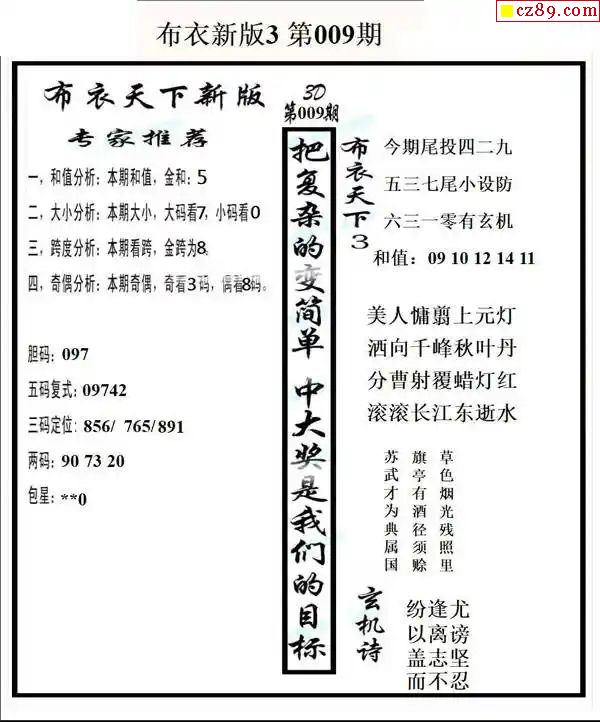 cz89.com
布衣新版3 第009期
布衣天下新版
专家推荐
一，和值分析：本期和值，金和：5
二，大小分析：本期大小，大码看7，小码看0
三，跨度分析：本期看跨，金跨为8。
四，奇偶分析：本期奇偶，奇看3码，偶看8码。
胆码：097
五码复式：09742
三码定位：856/ 765/891
两码：90 73 20
包星：**0
3D
第009期
把复杂的变简单 中大奖是我们的目标
布衣天下3
今期尾投四二九
五三七尾小设防
六三一零有玄机
和值：09 10 12 14 11
美人慵翦上元灯
洒向千峰秋叶丹
分曹射覆蜡灯红
滚滚长江东逝水
苏旗草
武亭色
才有烟
为酒光
典径残
属须照
国赊里
玄机诗
纷逢尤
以离谤
盖志坚
而不忍